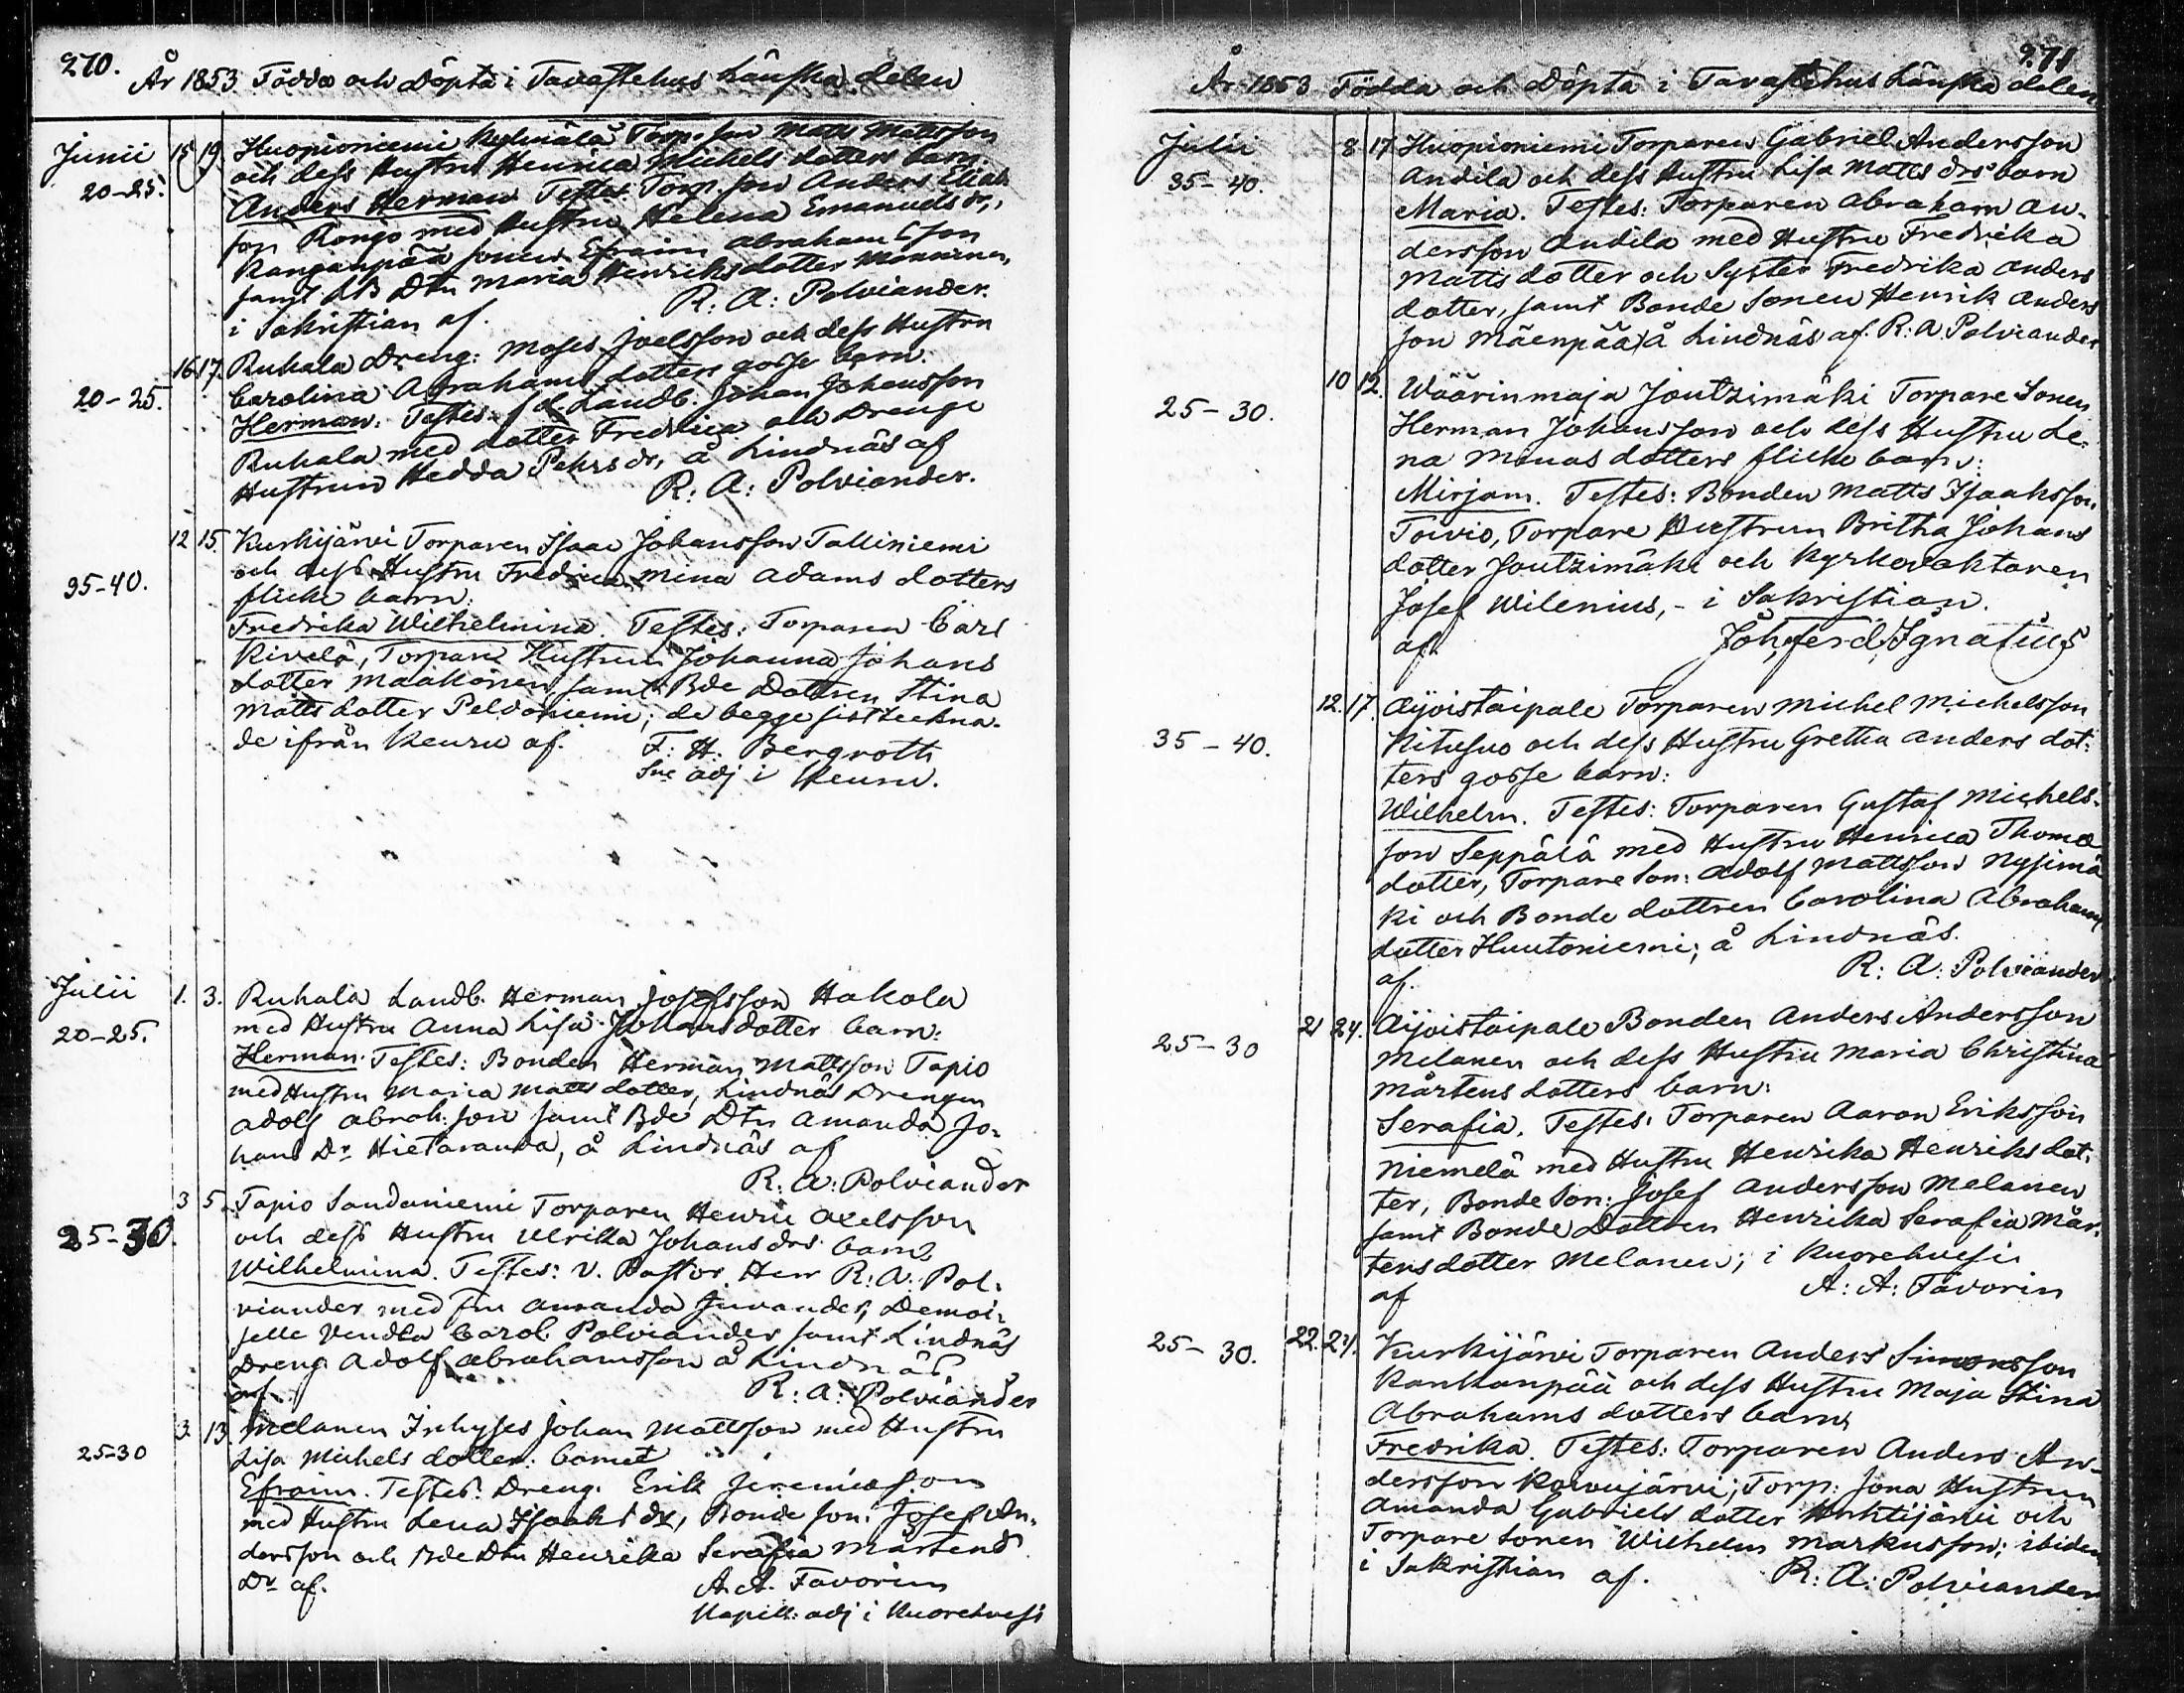 270.
År 1853 Födda och Döpta i Tavastehus Länska delen
Junii 15 19 Huopioniemi Kylmälä Torp. son Matts Mattsson
20-25. och dess Hustru Henrica Michels dotters barn.
Anders Herman Testes. Torp. son Anders Eliæ
son Rongo med Hustru Helena Emanuels dr,
Kanganpää sonen Efraim Abraham Eson
samt LB Dtn Maria Henriksdotter Manninen,
i Sakristian af. R: A: Polviander.
16 17. Ruhala Dreng: Moses Joelsson och dess Hustru
20-25. Carolina Abrahams dotters gosse barn.
Herman. Testes: Landb. Johan Johansson
Ruhala med dotter Fredrica och Drenge
Hustrun Hedda Pehrs dr, å Lindnäs af
R: A: Polviander.
12 15. Kurkijärvi Torparen Isaac Johansson Talliniemi
35-40. och dess Hustru Fredrica Mina Adams dotters
flicke barn:
Fredrika Wilhelmina. Testes: Torparen Carl
Kivelä, Torpare Hustrun Johanna Johans
dotter Maakönen, samt Bde Dottren Stina
Matts dotter Peldoniemi; de begge sistteckna-
de ifrån Keuru af. F: H. Bergroth
Sne adj i Keuru.
Julii 1. 3. Ruhala Landb. Herman Josefsson Hakola
20-25. med Hustru Anna Lisa Johans dotter barn:
Herman. Testes: Bonden Herman Mattsson Tapio
med Hustru Maria Matts dotter, Lindnäs Drengen
Adolf Abrah: son samt Bde Dtn Amanda Jo-
hans Dr Hietaranda, å Lindnäs af
R: A: Polviander
3 5. Tapio Sandaniemi Torparen Henric Axelsson
25-30. och dess Hustru Ulrika Johans drs barn,
Wilhelmina. Testes: V. Pastor Herr R: A: Pol-
viander med fru Amanda Juvander, Demoi-
selle Vendla Carol. Polviander samt Lindnäs
Dreng Adolf Abrahamsson å Lindnäs
af. R: A: Polviander
3. 13. Melanen Inhyses Johan Mattsson med Hustru
25-30 Lisa Michels dotter: barnet
Efraim. Testes. Dreng. Erik Jeremiasson
med Hustru Lena Isaaks dr, Bonde son: Josef An-
dersson och Bde Dtn Henrika Serafia Mårtens
Dr af. A. A. Favorin
Kapell: adj i Kuorehvesi
271
År 1853 Födda och Döpta i Tavastehus Länska delen
Julii 8 17 Huopioniemi Torparen Gabriel Andersson
35-40. Andila och dess Hustru Lisa Matts drs barn
Maria. Testes: Torparen Abraham An-
dersson Andila med Hustru Fredrika
Matts dotter och Syster Fredrika Anders
dotter, samt Bonde Sonen Henrik Anders
son Mäenpää å Lindnäs af. R: A. Polviander
10 12. Wäärinmaja Joutzimäki Torpare Sonen
25-30. Herman Johansson och dess Hustru Le-
na Monas dotters flicke barn:
Mirjam. Testes: Bonden Matts Isaaksson
Toivio, Torpare Hustrun Britha Johans
dotter Joutzimäki och Kyrkovaktaren
Josef Wilenius, - i Sakristian.
af. Joh, Ferd, Ignatius
12. 17. Äijoistaipale Torparen Michel Michelsson
35-40. Kitusuo och dess Hustru Gretha Anders dot-
ters gosse barn:
Wilhelm. Testes: Torparen Gustaf Michels-
son Seppälä med Hustru Henrica Thomæ
dotter, Torpare Son: Adolf Mattsson Nysimä
ki och Bonde dottren Carolina Abrahams
dotter Huutoniemi; å Lindnäs.
af. R: A: Polviander
21 24. Äijoistaipale Bonden Anders Andersson
25-30 Melanen och dess Hustru Maria Christina
Mårtens dotters barn:
Serafia. Testes: Torparen Aaron Eriksson
Niemelä med Hustru Henrika Henriks dot-
ter, Bonde Son: Josef Andersson Melanen
samt Bonde Dottren Henrika Serafia Mår-
tens dotter Melanen; i Kuorehvesi
af A: A: Favorin
22. 24. Kurkijärvi Torparen Anders Simonsson
25-30. Kankanpää och dess Hustru Maja Stina
Abrahams dotters barn
Fredrika. Testes: Torparen Anders An-
dersson Koivujärvi, Torp: sona Hustrun
Amanda Gabriels dotter Huhtijärvi och
Torpare sonen Wilhelm Markusson; ibidem
i Sakristian af. R: A: Polviander